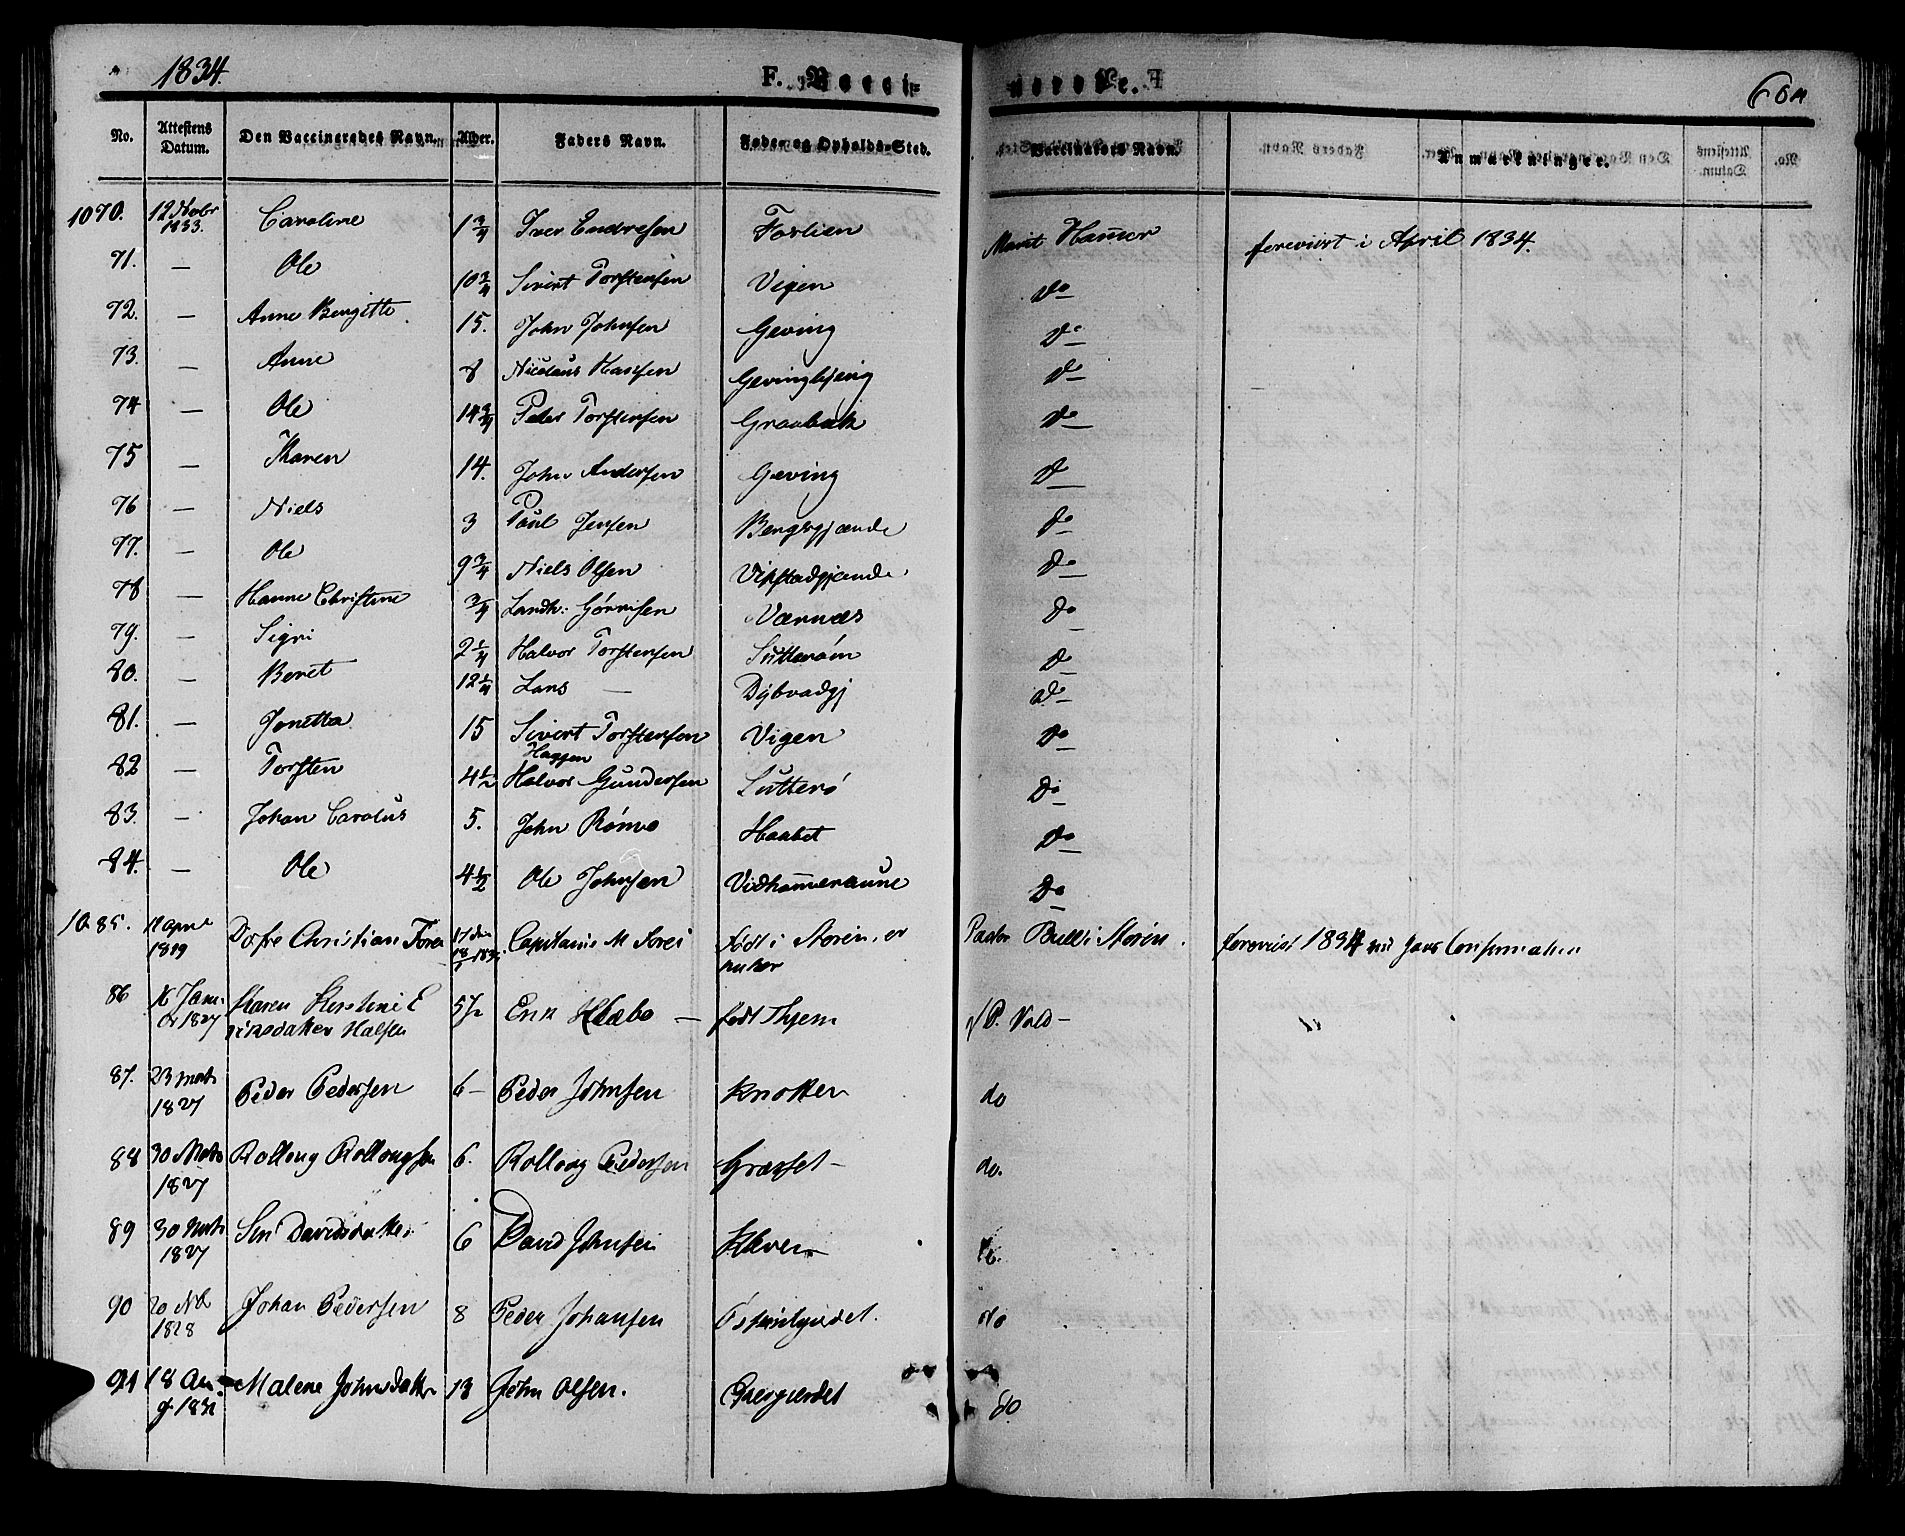 1834.
F. Vacci-
nerede.
No. Attestens Datum. Den Vaccineredes Navn. Alder. Faders Navn. Føde- og Opholds-Sted. Vaccinateurs Navn. Anmærkninger.
1070. 12 Nobr 1833. Caroline 1 3/4 Iver Endresen Foslien Marit Hamer foreviist i April 1834.
71. — Ole 10 3/4 Sivert Torstensen Vigen Do
72. — Anne Bergitte 15. John Johnsen Geving Do
73. — Anne 8 Nicolaus Hansen Gevingbjerg Do
74 — Ole 14 3/4 Peder Torstensen Graabæk Do
75 — Karen 14. John Andersen Geving Do
76 — Niels 3 Paul Jensen Bergsgjænde Do
77. — Ole 9 3/4 Niels Olsen Vipstadgjænde Do
78 — Hanne Christine 3/4 Landh: Gørrisen Værnæs Do
79. — Sigri 2 1/4 Halvor Torstensen Sutterøm Do
80. — Beret 12 1/4 Lars — Dybvadgj Do
81. — Jonetta 15 Sivert Torstensen Vigen Do
82 — Torsten 4 1/2 Haggen Halvor Gundersen Sutterø Do
83. — Johan Carolus 5. John Rømo Haabet Do
84. — Ole 4 1/2 Ole Johnsen Vidhammeraune Do
1085. 1819 Christian Capitaine M født i Støren, er Pastor Bull i Støren. foreviist 1834 ved hans Confirmation
86 16 Jan 1827 Karen Kirstine E
riksdatter Halsen Erik født P.
87. 23 1827 Peder Pedersen 6 — Peder Johnsen Knotten do
88 30 1827 Rolloug Rollougsen 6. Rolloug Pedersen Græsset — do.
89 30 1827 Siri Davidsdatter 6 David Johnsen Kleven do.
90 20 1828 Johan Pedersen 8 Peder Johansen do
91 18 Au
g 1831 Malene Johnsdatter 13 John Olsen. do.